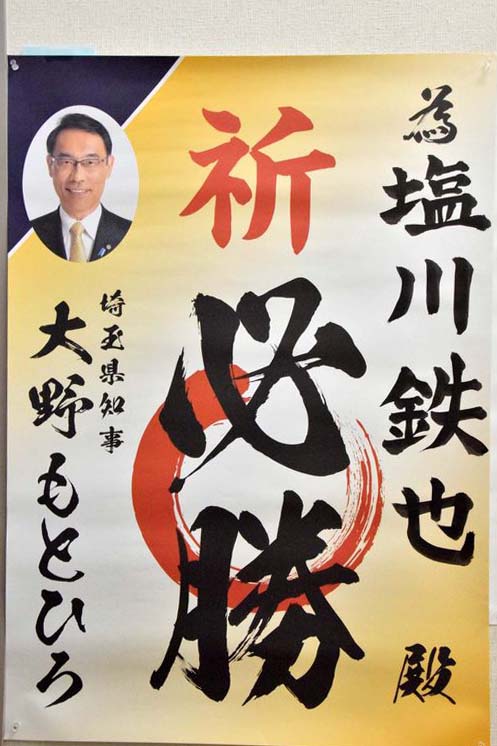 為塩川鉄也殿
祈必勝
埼玉県知事
大野もとひろ